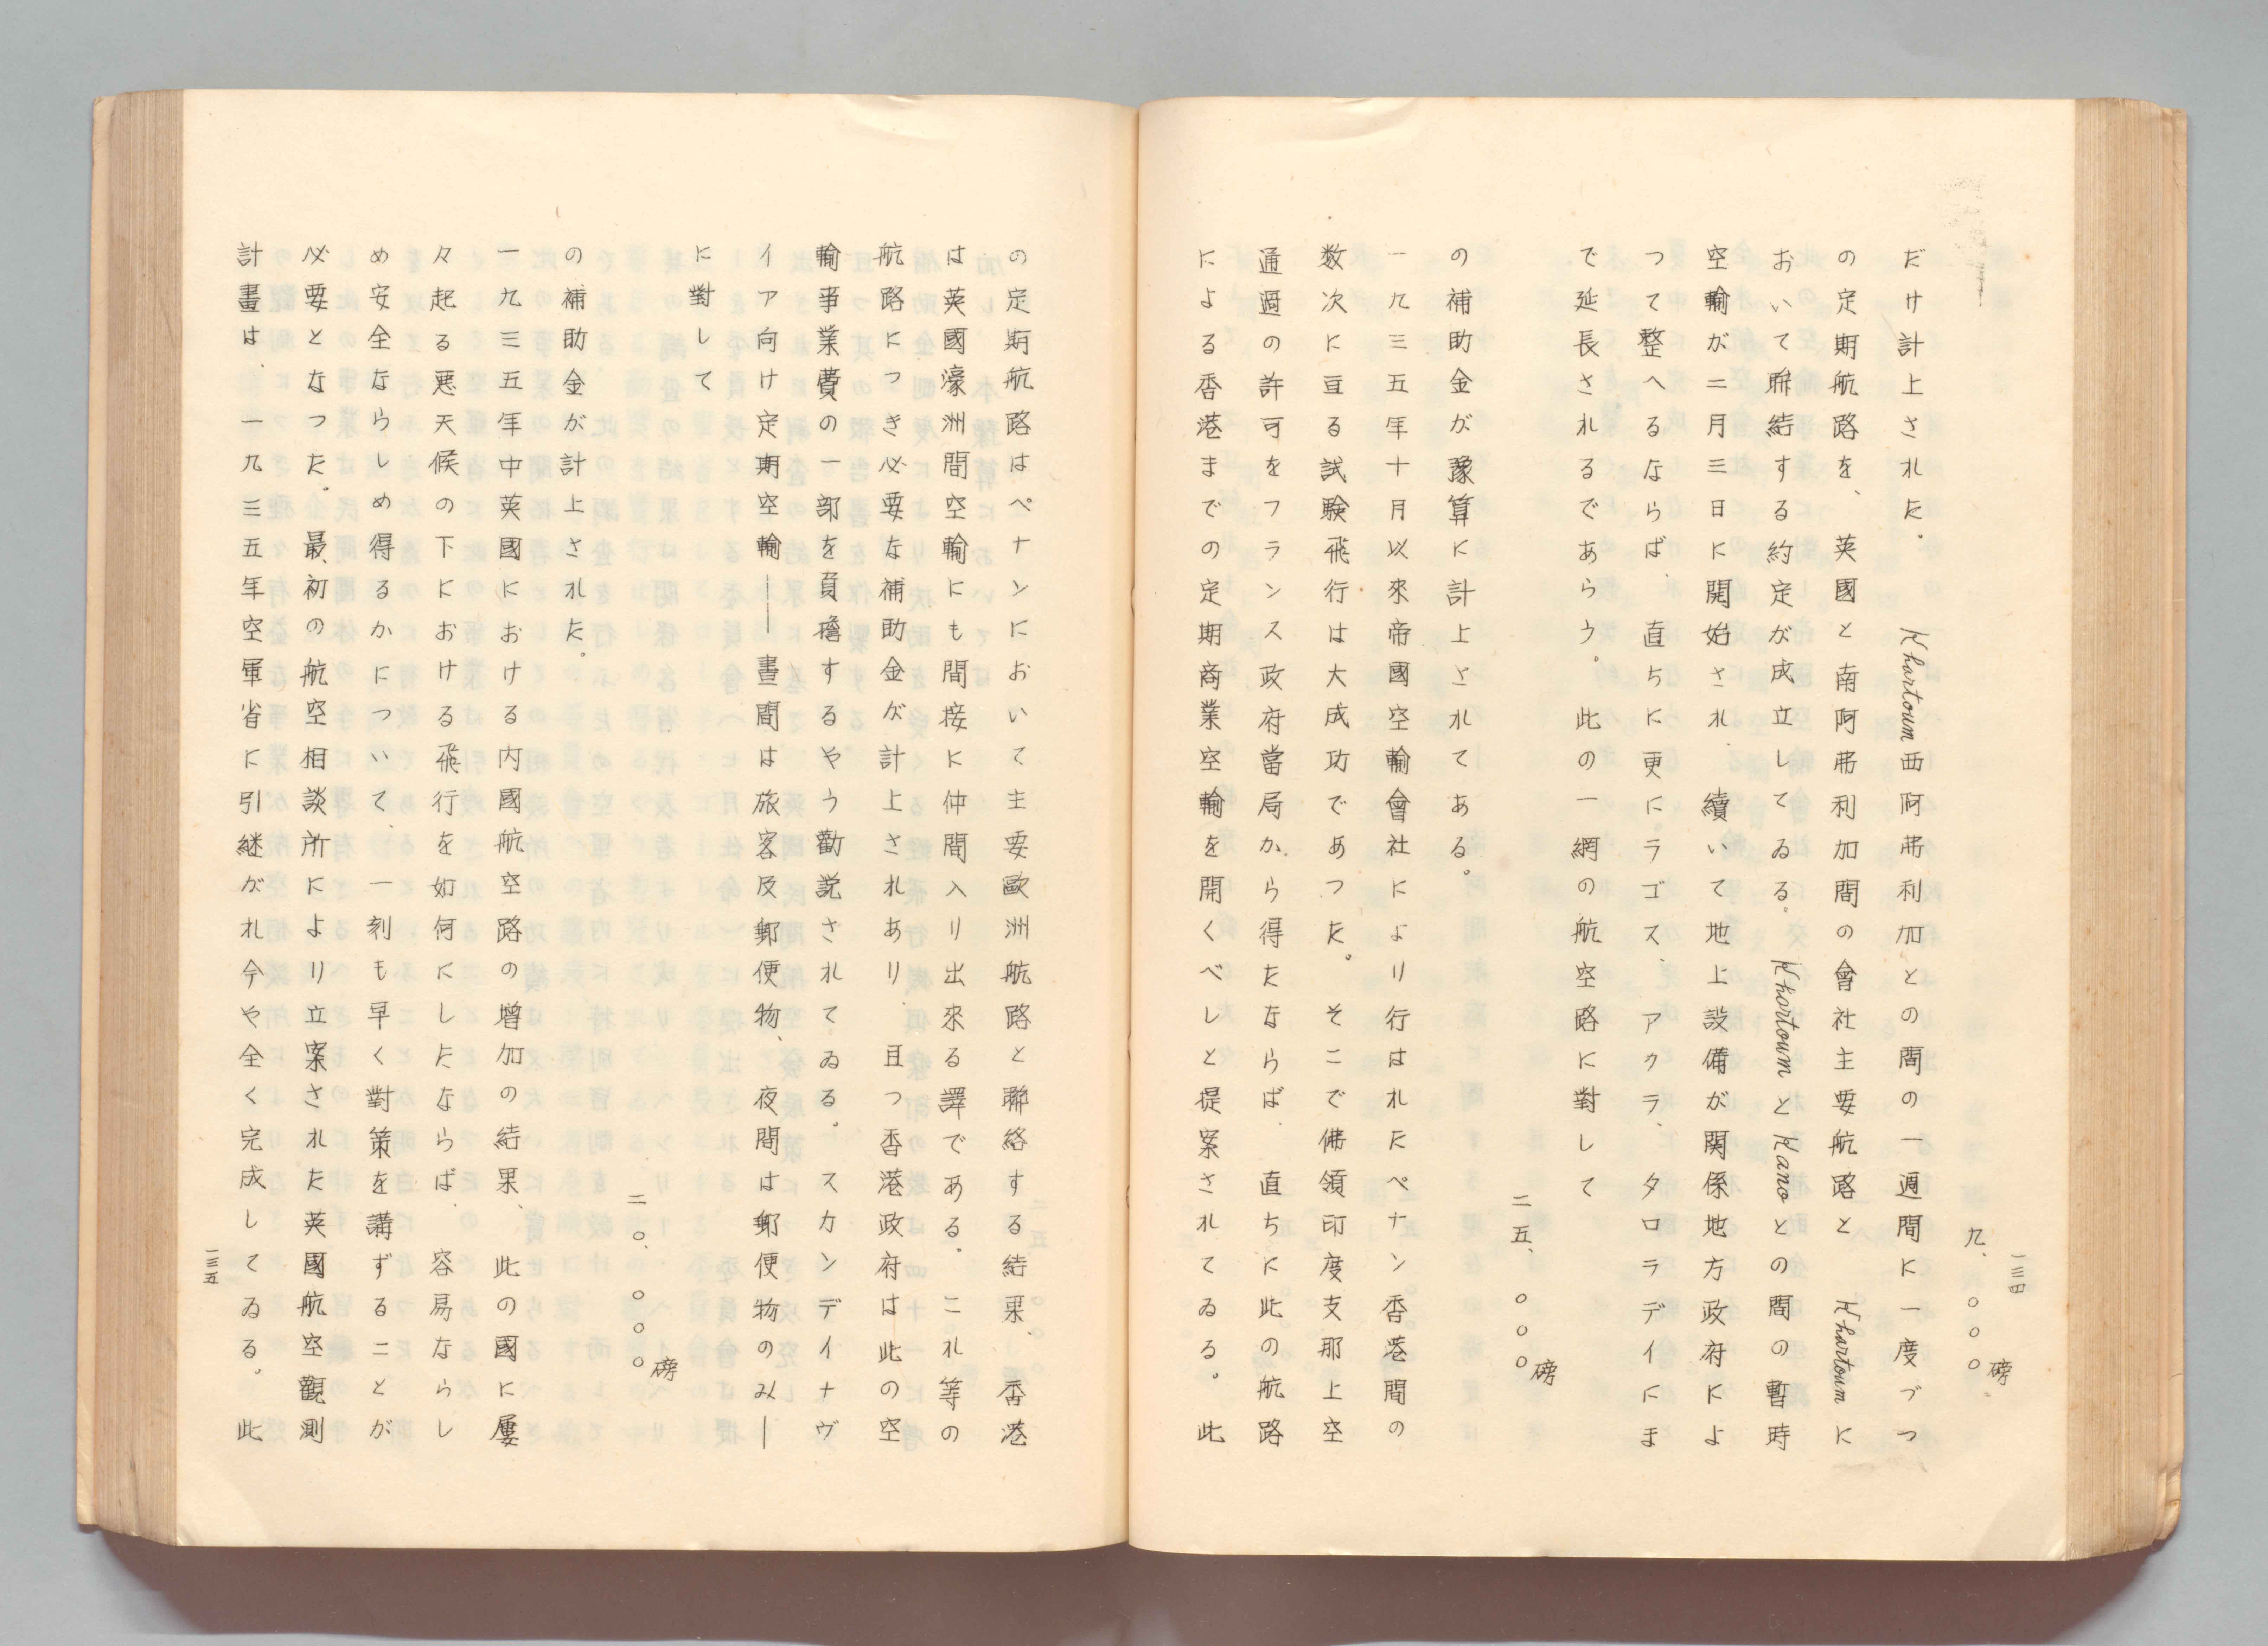 一三四
九、〇〇〇磅
だけ計上された。 Khartoum西阿弗利加との間の一週間に一度づつ
の定期航路を、英國と南阿弗利加間の會社主要航路と Khartoum に
おいて聯結する約定が成立してゐる。Khortoum と Kano との間の暫時
空輸が二月三日に開始され 續いて地上設備が関係地方政府によ
つて整へるならば、直ちに更にラゴス、アクラ、タロラデイにま
で延長されるであらう。此の一網の航空路に對して
二五、〇〇〇磅
の補助金が豫算に計上されてある。
一九三五年十月以來帝國空輸會社により行はれたペナン香港間の
数次に亘る試験飛行は大成功であつた。そこで佛領印度支那上空
通過の許可をフランス政府當局から得たならば、直ちに此の航路
による香港までの定期商業空輸を開くべしと提案されてゐる。此
の定期航路はペナンにおいて主要歐洲航路と聯絡する結果、香港
は英國濠洲間空輸にも間接に仲間入り出來る譯である。これ等の
航路につき必要な補助金が計上されあり、且つ香港政府は此の空
輸事業費の一部を負擔するやう勸説されてゐる。スカンデイナヴ
イア向け定期空輸――晝間は旅客及郵便物、夜間は郵便物のみ―
に對して
二〇、〇〇〇磅
の補助金が計上された。
一九三五年中英國における内國航空路の増加の結果、此の國に屢
々起る悪天候の下における飛行を如何にしたならば、容易ならし
め安全ならしめ得るかについて、一刻も早く對策を講ずることが
必要となつた。最初の航空相談所により立案された英國航空觀測
計畫は、一九三五年空軍省に引継がれ今や全く完成してゐる。此
一三五